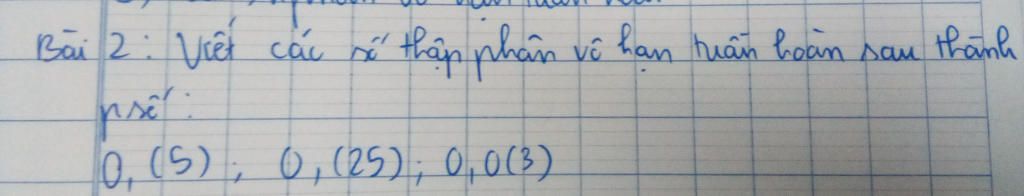 Bài 2: Viết các số thập phân vô hạn tuần hoàn sau thành
psố:
0,(5); 0,(25); 0,0(3)